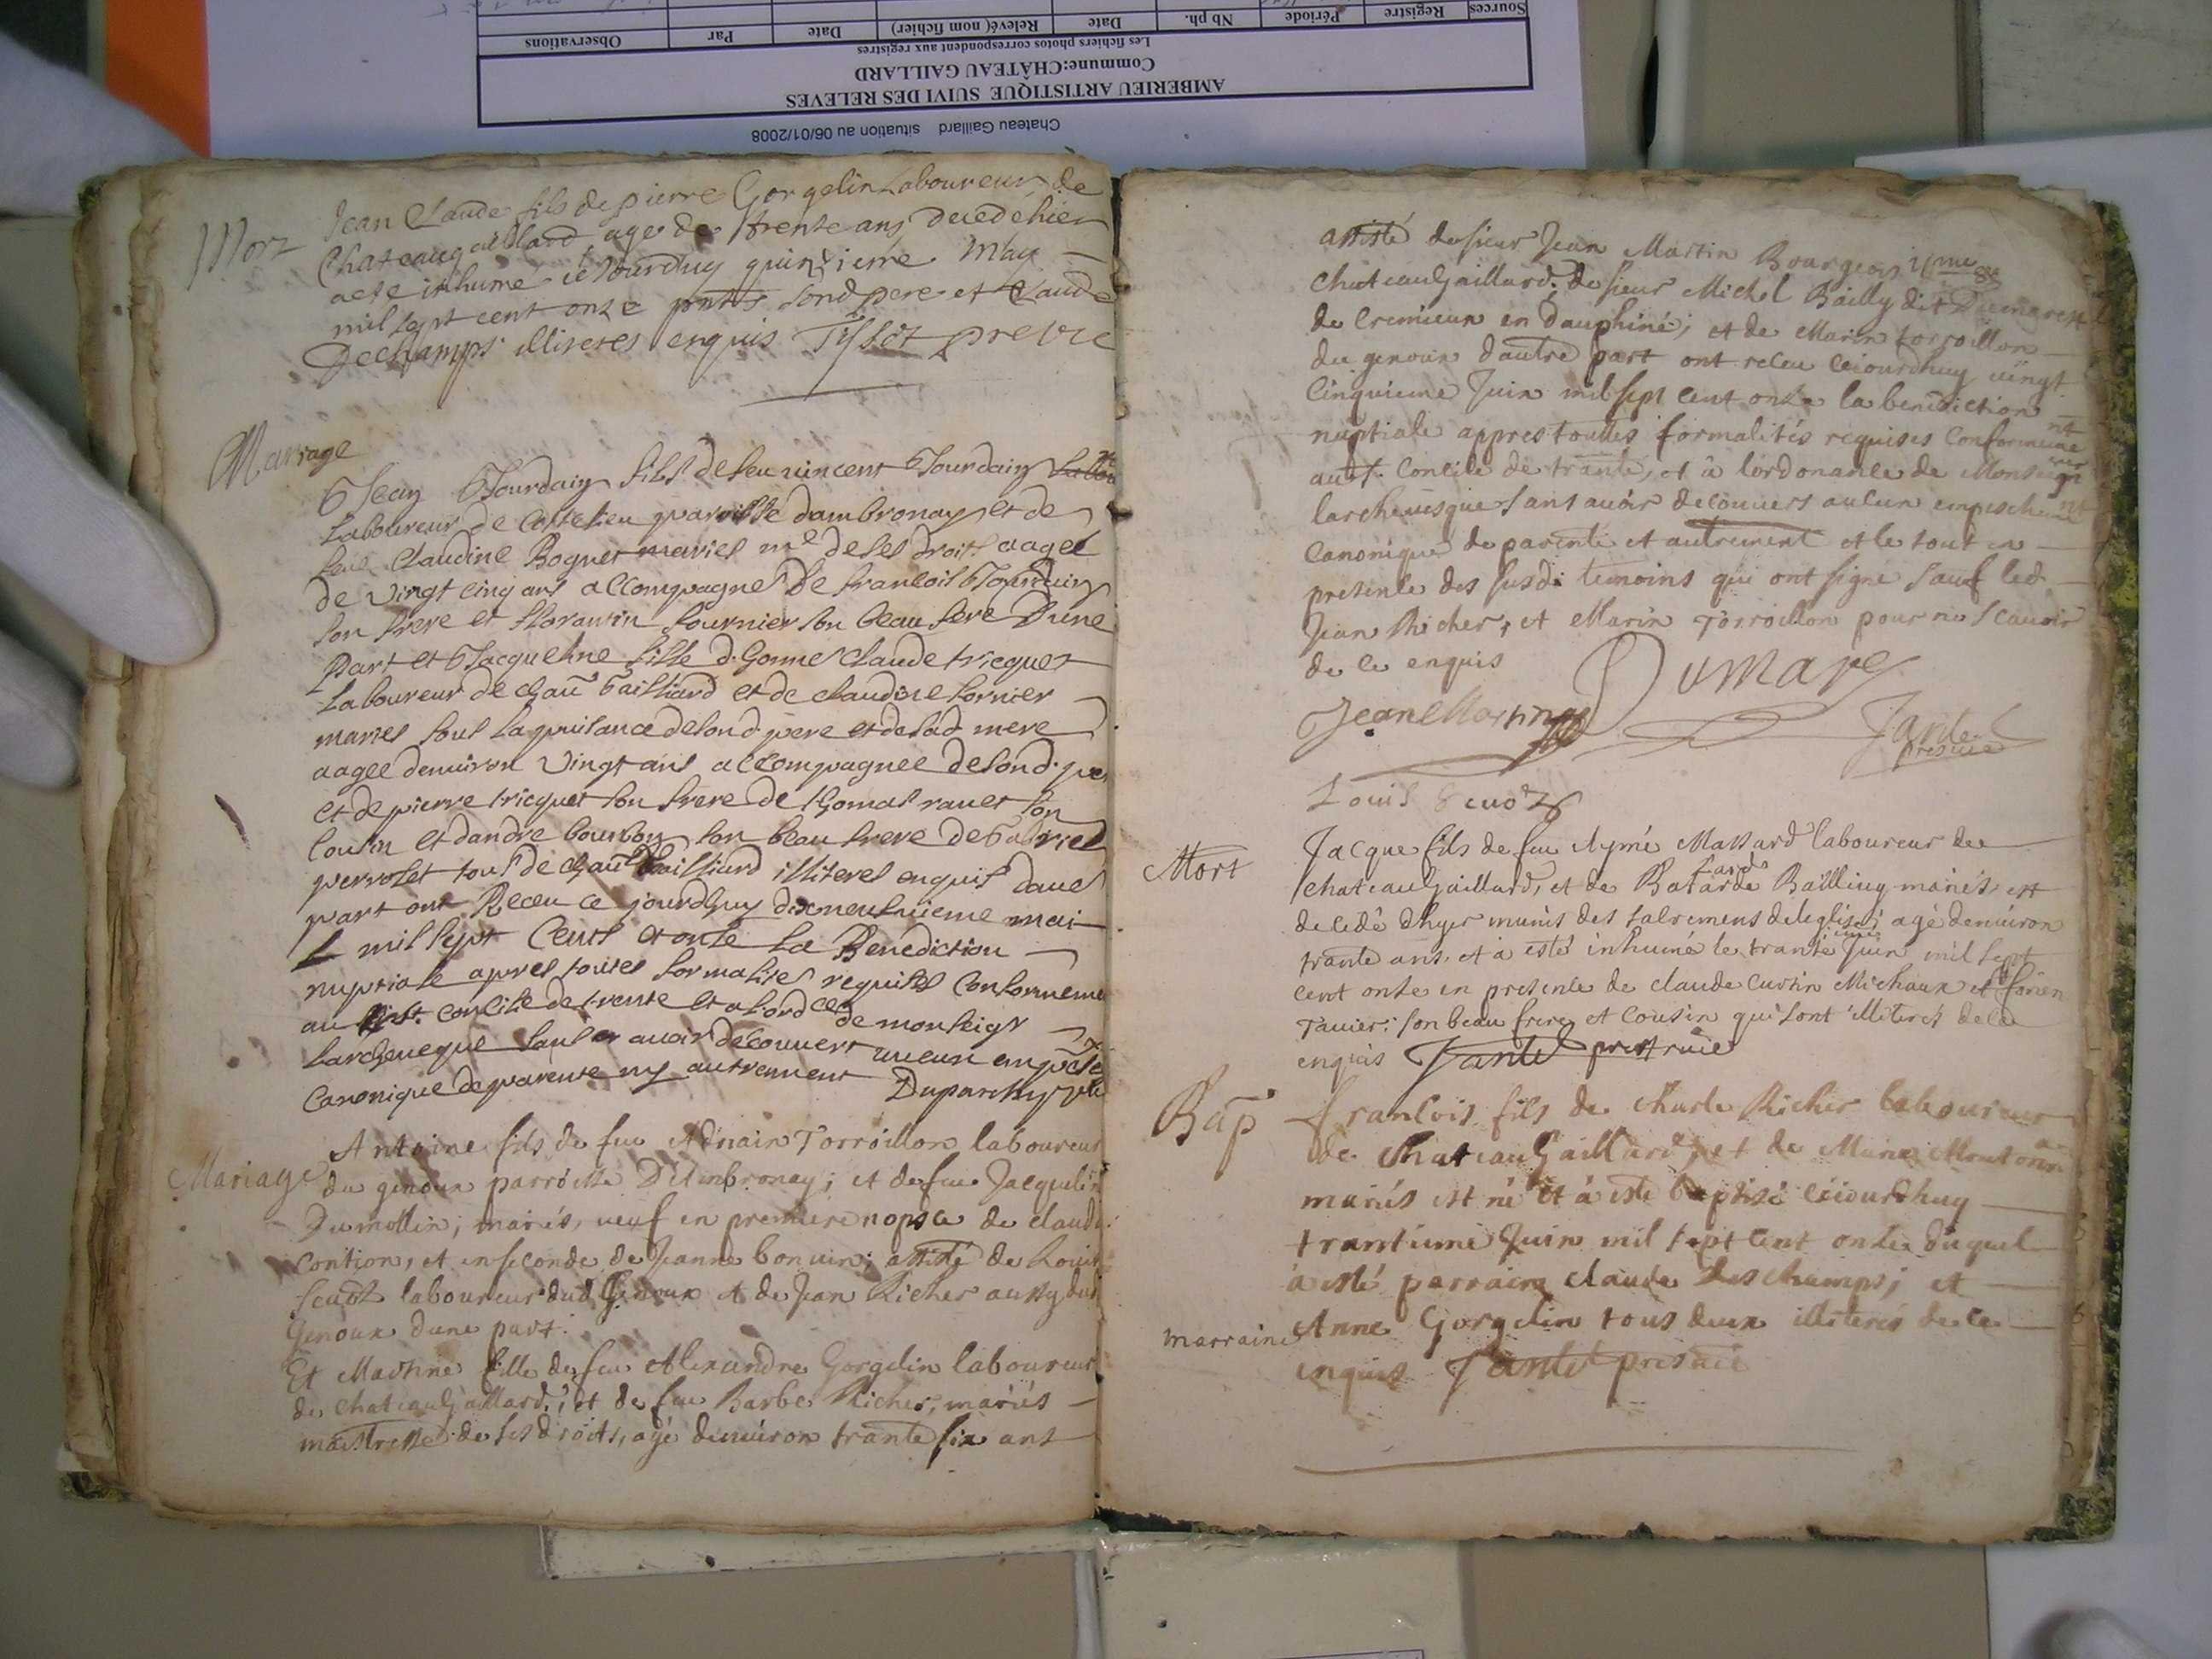 Chateau Gaillard situation au 06/01/2008
AMBERIEU ARTISTIQUE SUIVI DES RELEVES
Commune:CHÂTEAU GAILLARD
Les fichiers photos correspondent aux registres
Sources Registre Période Nb ph. Date Relevé( nom fichier) Date Par Observations
Mort
Jean Claude fils de pierre Gorgelin Laboureur de
Chateaugaillard age de trente ans decedé hier
aeté inhumé cejourdhuy quinzieme May
mil sept cent onze pnts sond pere et Claude
Dechamps illiteres enquis Tissot prevre
Mariage
Jean Jourdain fils de feu vincent Jourdain
Laboureur de Cottelieu parroisse dambronay et de
feue Claudine Boguet mariés me de ses droits aagé
de vingt cinq ans accompagné de francois Jourdain
son frere et florantin fournier son beau fere Dune
part et Jacqueline fille d. honne Claude tricquet
Laboureur de chau Gailliard et de claudine fornier
mariés sous la puisance desond. pere et desad mere
aagee denuiron vingt ans accompagnee desond. per
et de pierre tricquet son frere de thomas rauet son
cousin et dandre bourbon son beau frere de Gabriel
perrolet tous de chau Gailliard illiteres enquis daue
part ont Receu ce jourdhuy dixneufuieme mai
mil sept Cents et onse La Benediction
nuptiale apres toutes formalites requises Conformeme
au st. concile de trente et a lordce de monseigr
Larcheueque sans auoir decouuert aucun empeche
Canonique de parente ny autrement Duparchy
Mariage
Antoine fils de feu Adriain Torroillon laboureur
du genoux parroisse D'Ambronay; et de feue Jacqueline
Dumollin; mariés, veuf en premiere nopsce de claudi
contion, et en seconde de Jeanne bonuin; assisté de Louis
scuoz laboureur dud Genoux et de Jean Richer aussy dud
Genoux dune part.
Et Martine fille de feu Alexandre Gorgelin laboureur
de chateauGaillard; et de feue Barbe Richer, mariés
maistresse de ses droits, agé denuiron trante six ans
assisté de sieur Jean Martin Bourgeois
chateauGaillard; de sieur Michel Bailly dit Dumarest
de Cremieux en Dauphiné; et de Marin torroillon
du genoux dautre part ont receu ceiourdhuy uingt
cinquieme Juin mil sept cent onze la benediction
nuptiale appres touttes formalités requises conformement
aust. Concile de trante, et à lordonance de Monseigneur
larcheuesque sans auoir decouuers aulcun empeschement
canonique de parenté et autrement et le tout en
presence des susd. temoins qui ont signé sauf led.
Jean Richer, et Marin Torroillon pour ne scauoir
de ce enquis Dumares
Jean Martin Jantet
presvie
Louis Scuoz
Mort
Jacque fils de feu Aymé Massard laboureur de
chateauGaillard, et de Batarde Bailling mariés, est
decedé dhyer munis des sacremens deleglise; agé denuiron
trante ans, et à esté inhumé le trantieme Juin mil sept
cent onze en presence de claude Curtin Michaux et forien
Tauier; son beau frere et Cousin qui sont illiterés de ce
enquis Jantet prest vuie
Bap
francois fils de Charle Richer laboureur
de chateauGaillard; et de Marie Moutonna
mariés est né et à esté baptisé céiourdhuy
trantieme Juin mil sept cent onze duquel
à esté parrain claude Deschamps; et
marraine Anne Gorgelin tous deux illiterés de ce
enquis Jantet presvie